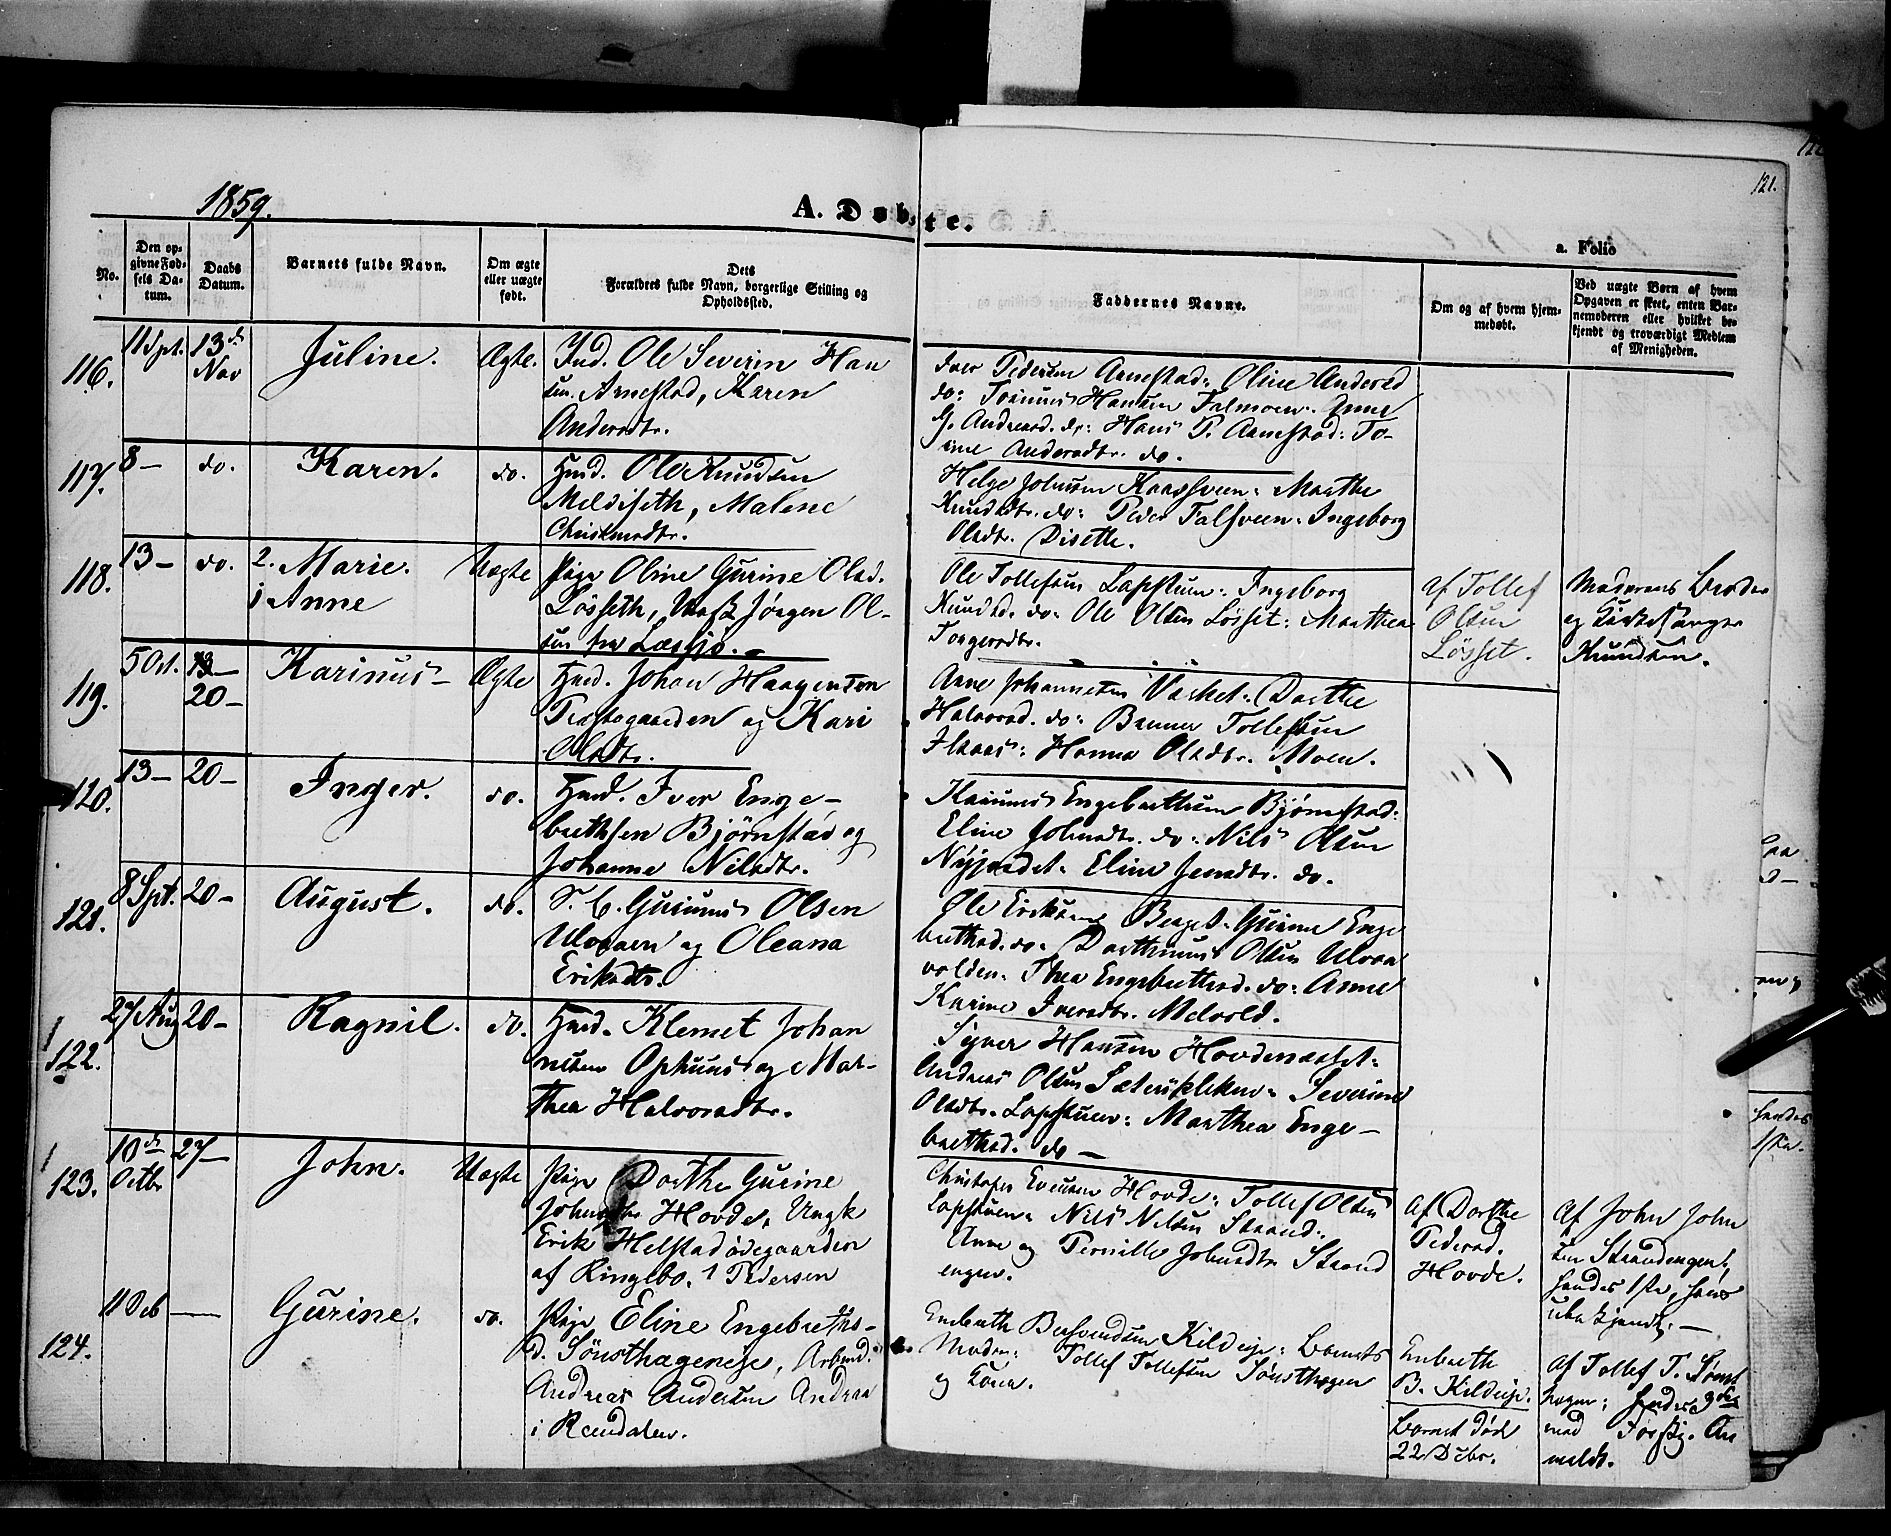 1859.
A. Døbte.
121.
a. Folio
No.
Den opgivne Fødsels Datum.
Daabs Datum.
Barnets fulde Navn.
Om ægte eller uægte født.
Dets Forældres fulde Navn, borgerlige Stilling og Opholdssted.
Faddernes Navne.
Om og af hvem hjemmedøbt.
Ved uægte Børn af hvem Opgaven er skeet, enten Barnemoderen eller hvilket bekjendt og troværdigt Medlem af Menigheden.
116.
11 Spt.
13de Nov
Juline.
Ægte.
Ind. Ole Severin Han
sen Arnestad, Karen
Andersdtr.
Iver Pedersen Arnestad: Oline Andersd
do: Hansen Falmoen: Anne
G. Andersd. do: Hans P. Arnestad: To-
rine Andersdtr. do.
117.
8 –
do.
Karen.
do.
Husd. Ole Knudsen
Meldiseth, Malene
Christensdtr.
Helge Johnsen Kaassveen: Marthe
Knudsdtr. do: Peder Falsveen: Ingeborg
Olsdtr. Disethe.
118.
13 –
do.
2. Marie.
1 Anne
Uægte
Pige Oline Gurine Olsd.
Løsseth, Ungk. Jørgen Ol-
sen fra Læssjø. –
Ole Tollefsen Lapstuen: Ingeborg
Knudsd. do: Ole Olsen Løsset: Marthea
Torgersdtr.
af Tollef
Olsen
Løsset.
Moderens Broder
og Kirkesanger
Knudsen.
119.
5 Oct.
13 –
20 –
Karinus –
Ægte
Husd. Johan Haagensen
Præstegaarden og Kari
Olsdtr.
Arne Johannesen Dorthe
Halvorsd. do: Tollefsen
Hanna Olsdtr. Moen.
120.
13 –
20 –
Inger.
do.
Husd. Iver Enge-
brethsen Bjørnstad og
Johanne Nilsdtr.
Karinus Engebrethsen Bjørnstad:
Eline Johnsdtr. do: Nils Olsen
Nyjordet: Eline Jensdtr. do.
121.
8 Spt.
20 –
August.
do.
S. E. Gurinus Olsen
Ulvaaen og Oleana
Eriksdtr.
Ole Eriksen Berget: Gurine Enge
brethsd. do: Dorthinus Olsen Ulvaa
volden: Thea Engebrethsd. do: Anne
Karine Iversdtr. Melvold.
122.
27 Aug
20 –
Ragnil.
do.
Husd. Klemet Johan
nesen Ophuus og Mar-
thea Halvorsdtr.
Syver Hansen Hovdenæsset:
Andreas Olsen Severine
Olsdtr. Lapstuen: Marthea Enge-
brethsd. do –
123.
10de Octbr
27 –
John.
Uægte
Pige Dorthe Gurine
Johnsdtr Hovde, Ungk
Erik Helstadødegaarden
af Ringebo. 1 Pedersen
Christopher Evensen Hovde: Tollef Olsen
Lapstuen: Nils Nilsen Strand:
Anne og Pernille Johnsdtr Strand
engen.
Af Dorthe
Pedersd.
Hovde.
Af John John
sen Strandengen;
hendes 1ste, hans
ubekjendt. –
124.
11 Deb
—
Gurine.
do.
Pige Eline Engebreths-
d. Sønsthageneje, Arbmd.
Andreas Andersen Andraa
i Rendalen.
Embreth Bersvendsen Kildeeje: Barnets
Moder: Tollef Tollefsen Sønsthagen
og Kone.
Embreth
B. Kildeeje.
Barnet død
22 Debr.
Af Tollef T. Sønst
hagen; hendes 3die
med An
meldt.